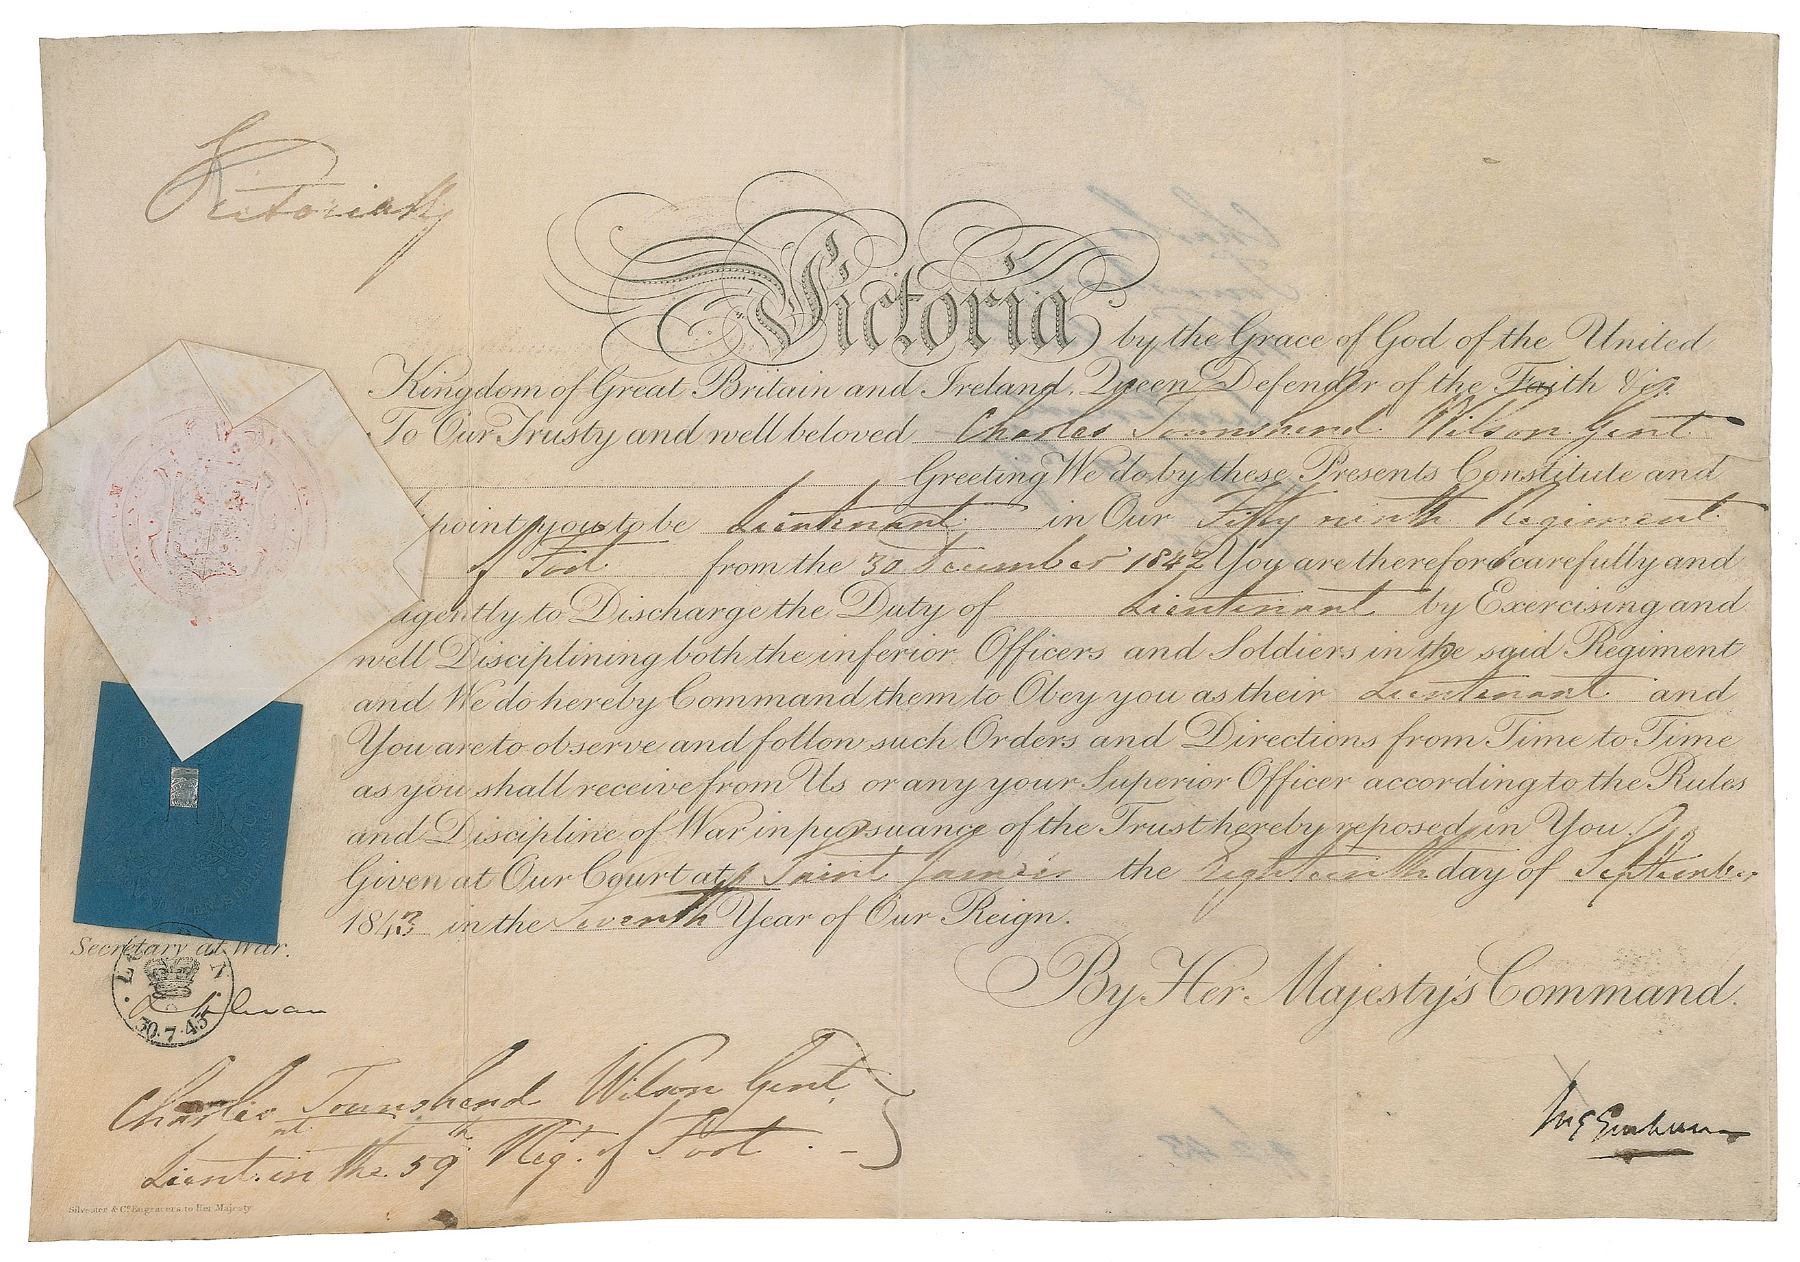 Victoria R
Victoria by the Grace of God of the United
Kingdom of Great Britain and Ireland, Queen Defender of the Faith &c.
To Our Trusty and well beloved Charles Townshend Wilson Gent
Greeting We do by these Presents Constitute and
point you to be Lieutenant in Our Fifty ninth Regiment
of Foot from the 30 December 1842 You are therefore carefully and
igently to Discharge the Duty of Lieutenant by Exercising and
well Disciplining both the inferior Officers and Soldiers in the said Regiment
and We do hereby Command them to Obey you as their Lieutenant and
You are to observe and follow such Orders and Directions from Time to Time
as you shall receive from Us or any your Superior Officer according to the Rules
and Discipline of War in pursuance of the Trust hereby reposed in You.
Given at Our Court at Saint James's the Eighteenth day of September
1843 in the Seventh Year of Our Reign.
By Her Majesty's Command.
Secretary at War.
30.7.43
Charles Townshend Wilson Gent
Lieut. in the 59th Regt. of Foot
Silvester & Co. Engravers to Her Majesty